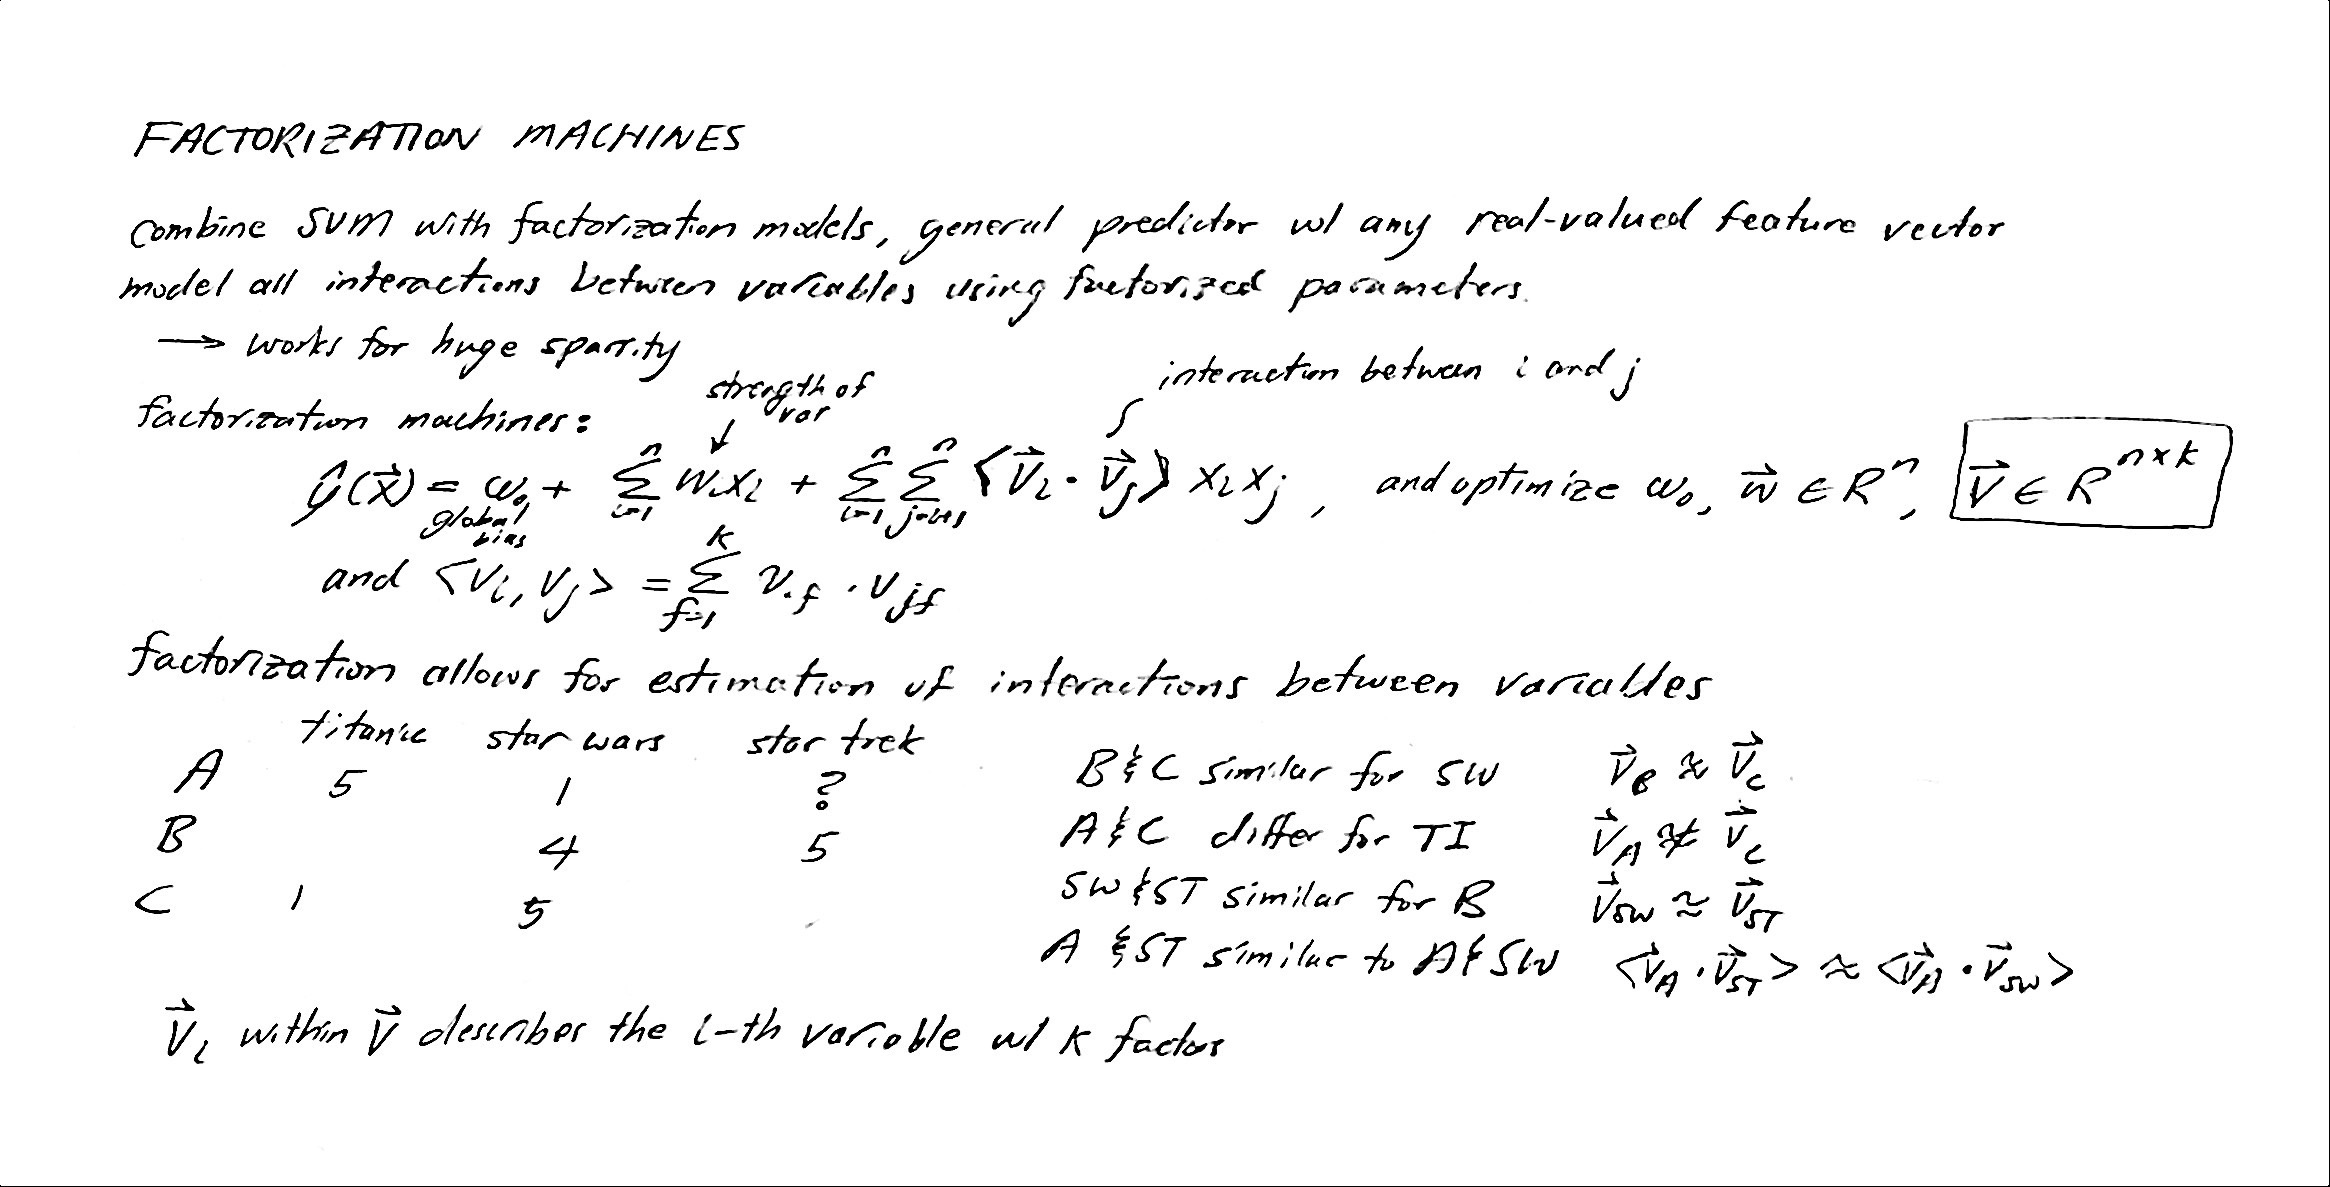 FACTORIZATION MACHINES
combine SVM with factorization models, general predictor w/ any real-valued feature vector
model all interactions between variables using factorized parameters.
→ works for huge sparsity
strength of var
interaction between i and j
factorization machines:
ŷ(x⃗) = w₀ + Σᵢ₌₁ⁿ wᵢxᵢ + Σᵢ₌₁ⁿ Σⱼ₌ᵢ₊₁ⁿ <v⃗ᵢ · v⃗ⱼ> xᵢxⱼ , and optimize w₀, w⃗ ∈ Rⁿ, V⃗ ∈ Rⁿˣᵏ
global bias
and <vᵢ, vⱼ> = Σ_{f=1}^{k} v_{if} · v_{jf}
factorization allows for estimation of interactions between variables
titanic star wars star trek
A 5 1 ?
B 4 5
C 1 5
B & C similar for SW v⃗_B ≈ v⃗_C
A & C differ for TI v⃗_A ≉ v⃗_C
SW & ST similar for B v⃗_SW ≈ v⃗_ST
A & ST similar to A & SW <v⃗_A · v⃗_ST> ≈ <v⃗_A · v⃗_SW>
v⃗ᵢ within V⃗ describes the i-th variable w/ k factors